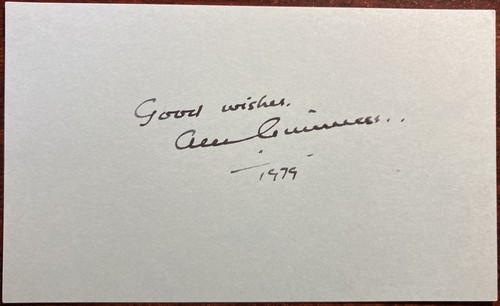 Good wishes.
Alec Guinness..
1979